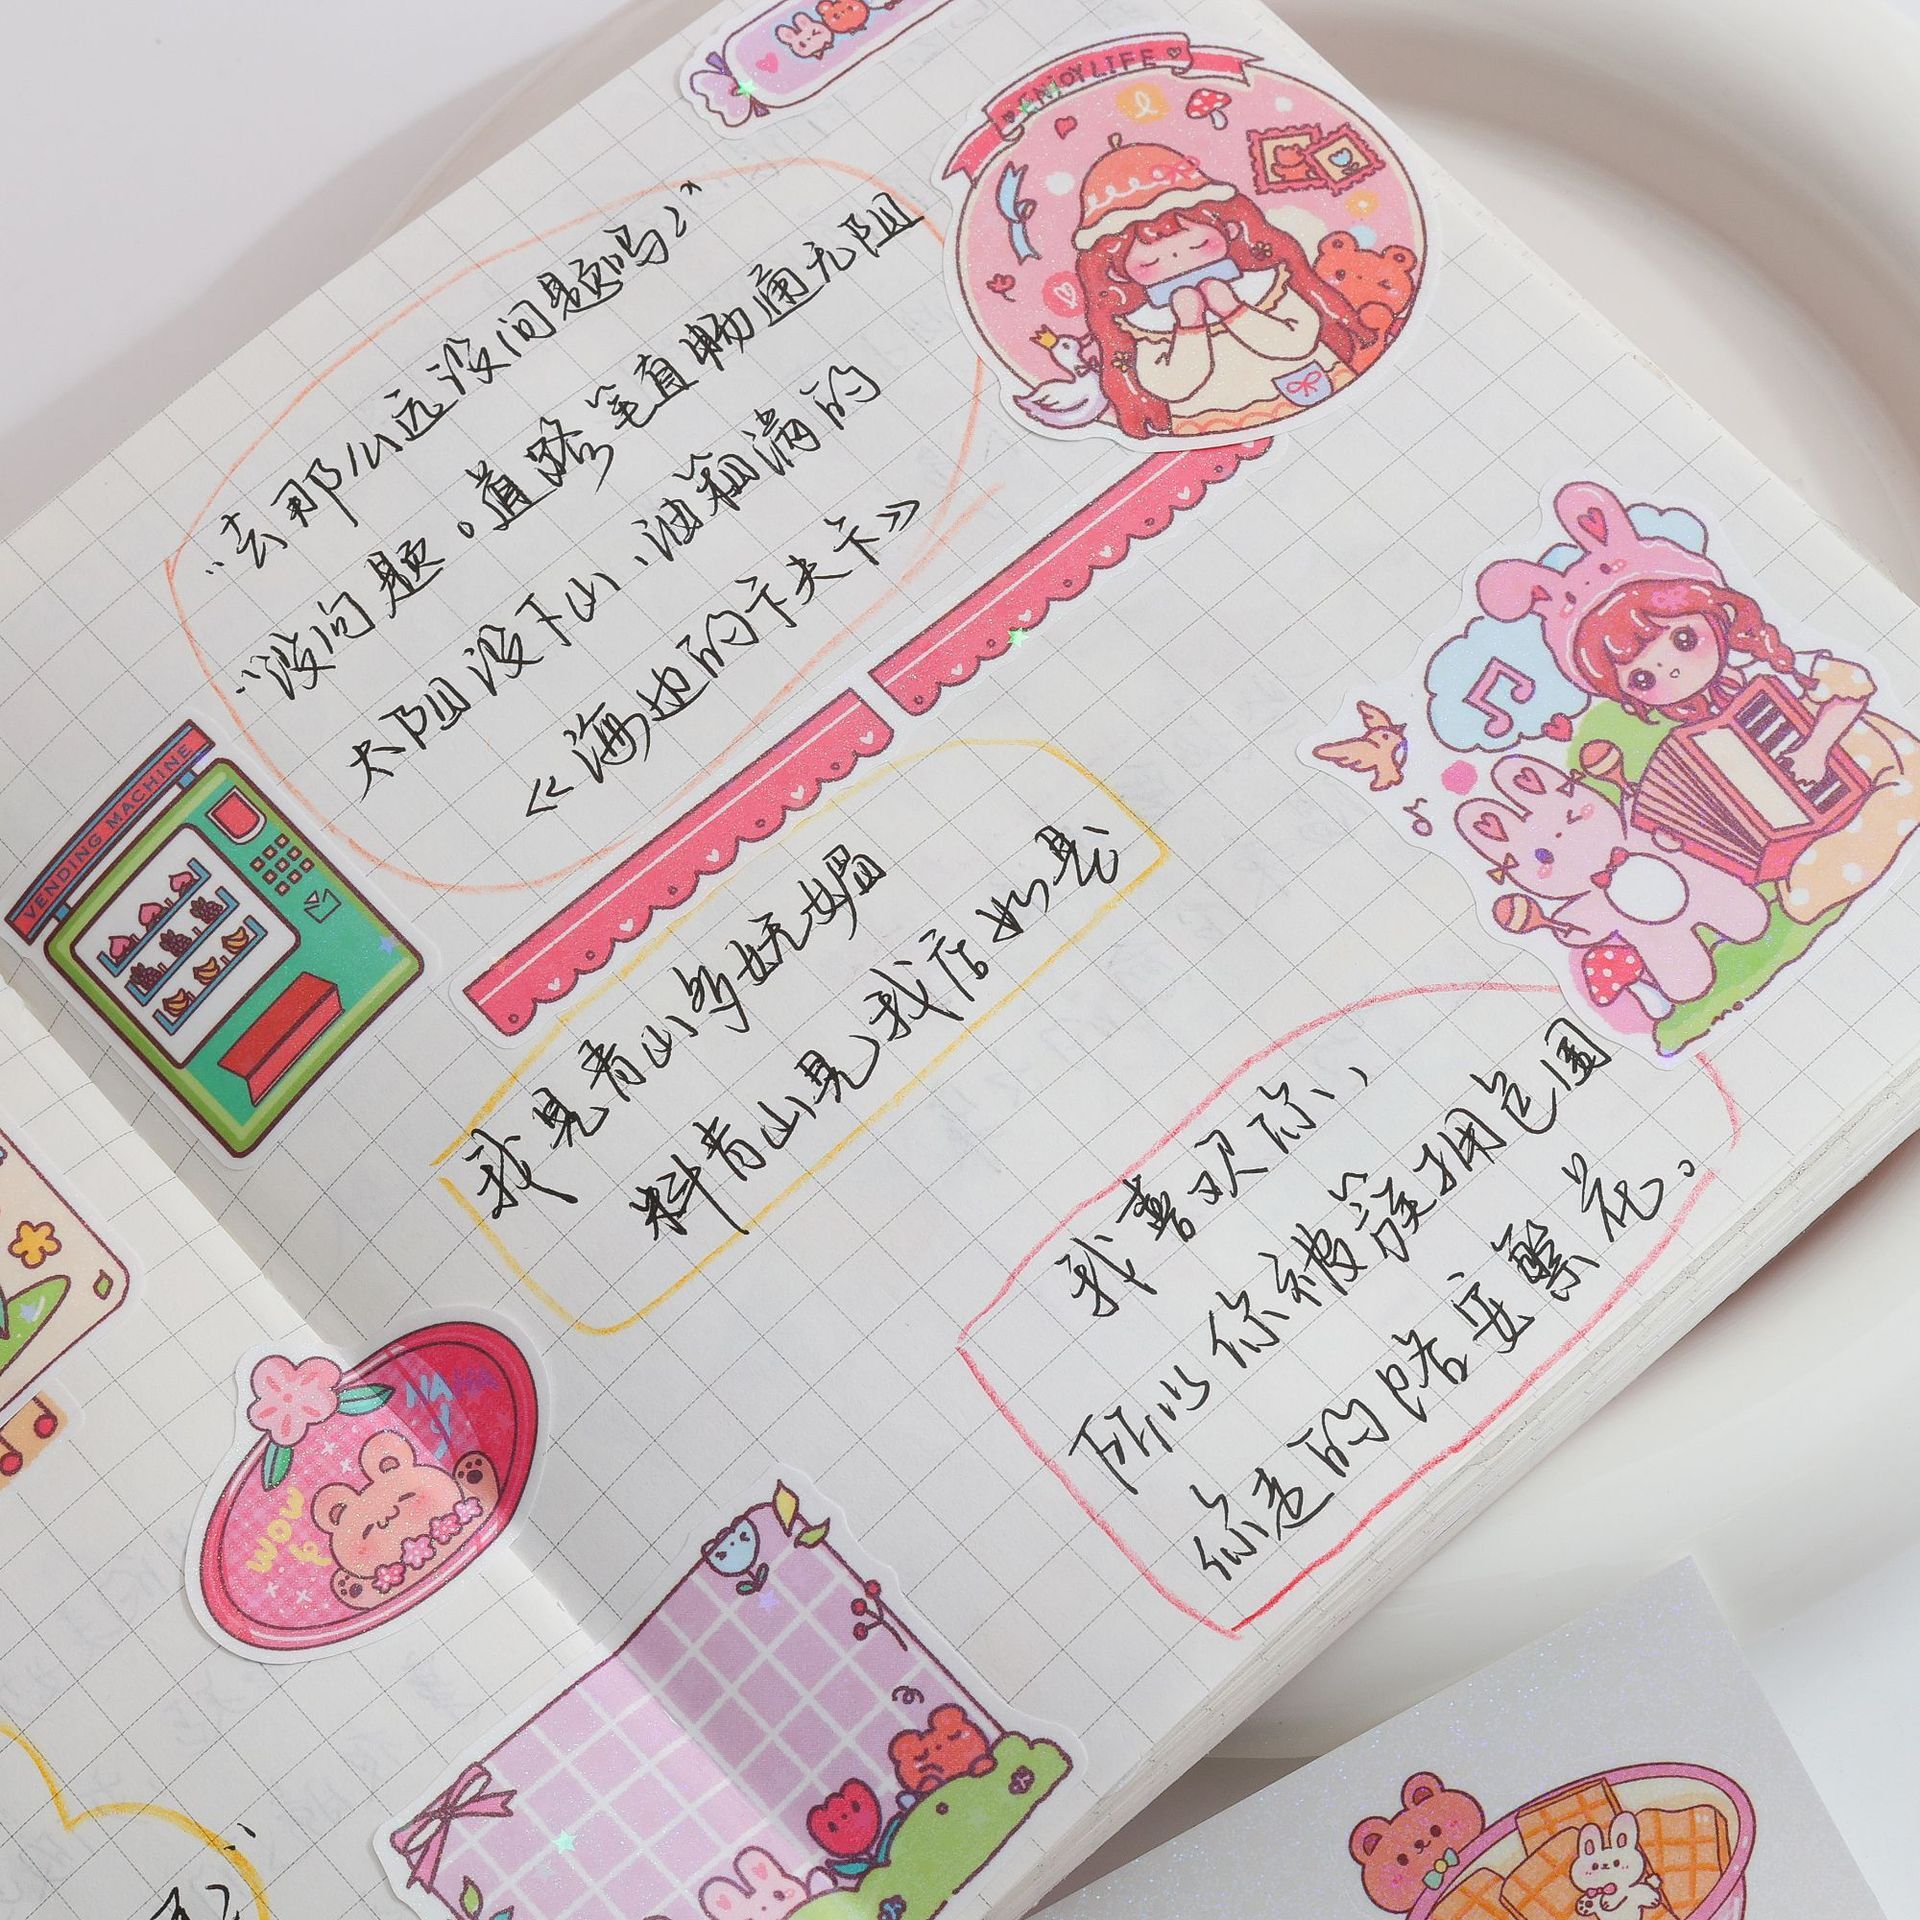 ENJOY LIFE
“去那么远没问题吗？”
“没问题。道路笔直畅通无阻
太阳没下山，油箱满的
《海边的卡夫卡》
VENDING MACHINE
我见青山多妩媚
料青山见我应如是
我喜欢你，
所以你被簇拥包围
你走的路要繁花。
WOW